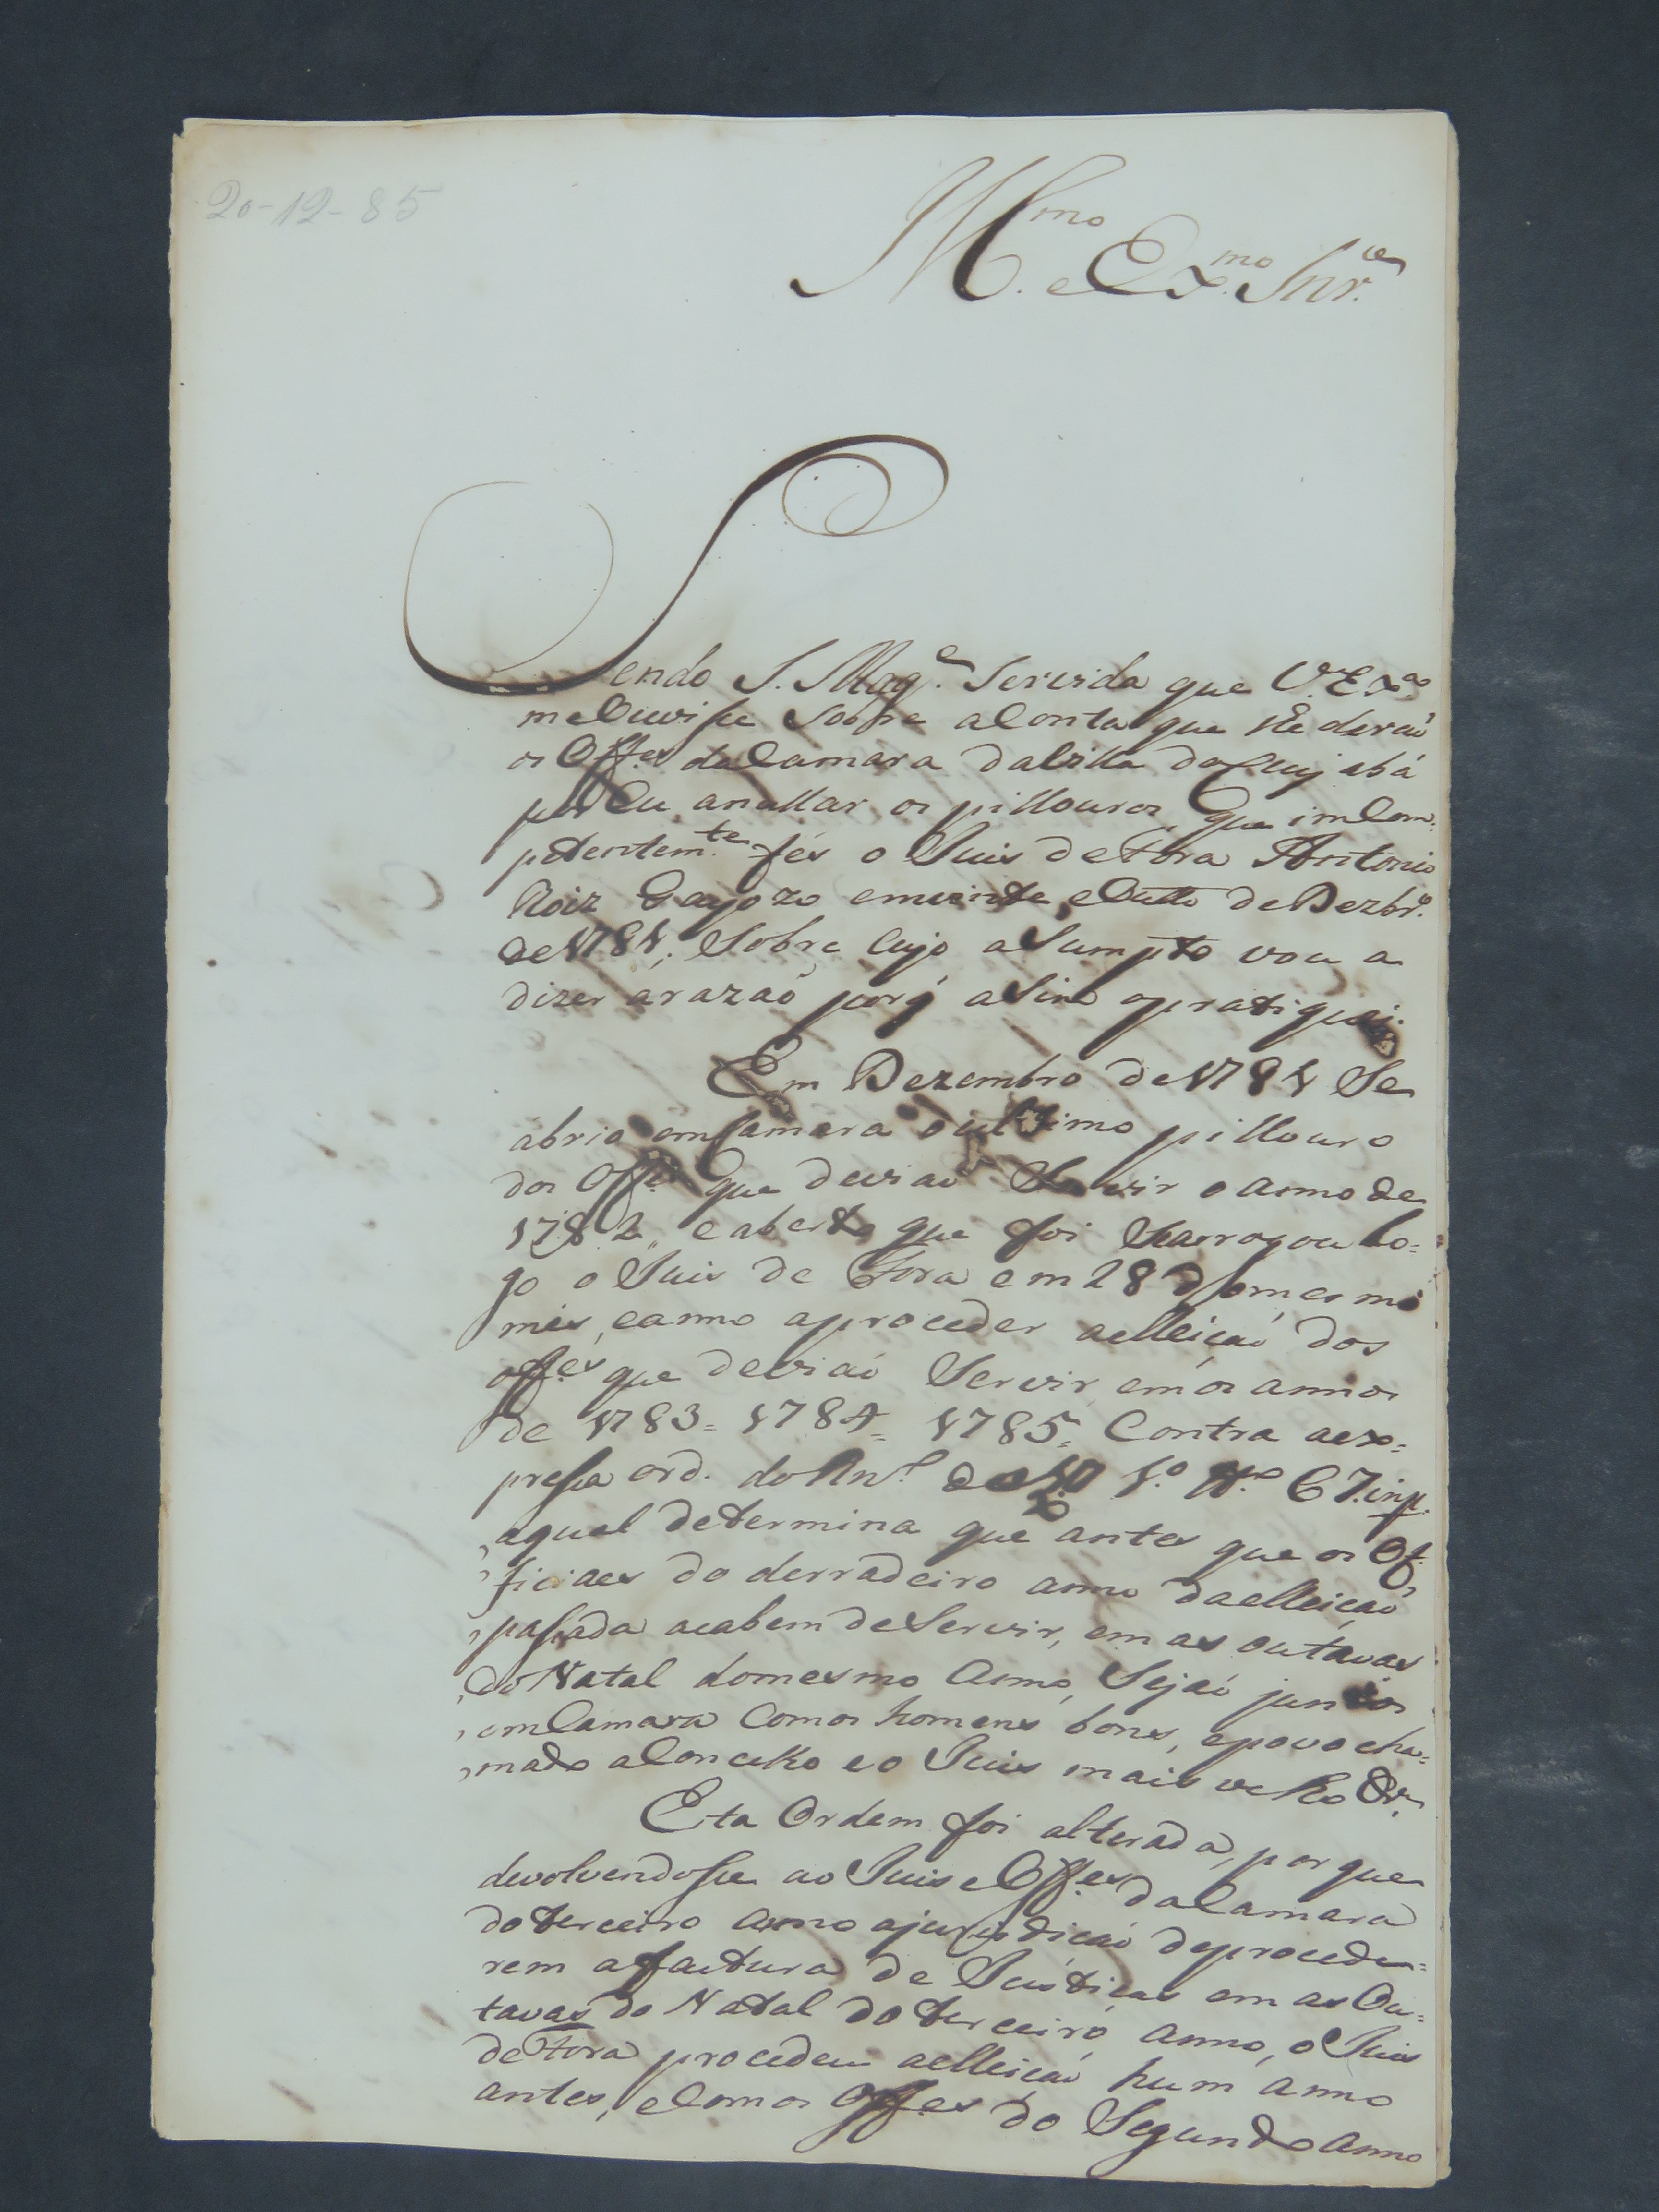 20-12-85
Illmo. e Exmo. Snr.
Sendo S. Mage. Servida que V. Exa.
me ouvise sobre a Conta que lhe deraõ
os Offes. da Camara da villa do Cuyabá
por Eu anullar os pillouros, que imCom=
petentemte. fés o Juis de Fora Antonio
Roiz Gayozo em vinte e Outto de Dezbro.
de 1781, Sobre Cujo aSumpto vou a
dizer a razaõ porq̃ aSim o pratiquei.
Em Dezembro de 1781 Se
abrio em Camara o ultimo pillouro
dos Offes. que deviaõ Servir o anno de
1782, e aberto que foi Se arrogou lo=
go o Juis de Fora em 28 do mesmo
mes, e anno a proceder a elleiçaõ dos
offes. que deviaõ Servir em os annos
de 1783= 1784= 1785= Contra a ex=
preSsa ord. do 1º. tt.º 67. in p.
a qual determina que antes que os Of=
ficiaes do derradeiro anno da elleiçaõ
paSsada acabem de Servir, em as outavas
do Natal do mesmo anno, Sejaõ juntos
em Camara Com os homens bons, e povo cha=
mado a Concelho e o Juis mais velho &ra.
Esta Ordem foi alterada, por que
devolvendoSse ao Juis e Offes. da Camara
do terceiro anno a jurisdiçaõ de procede=
rem a factura de Justiças em as Ou=
tavas do Natal do terceiro anno, o Juis
de Fora procedeu a elleiçaõ hum anno
antes, e Com os Offes. do Segundo anno